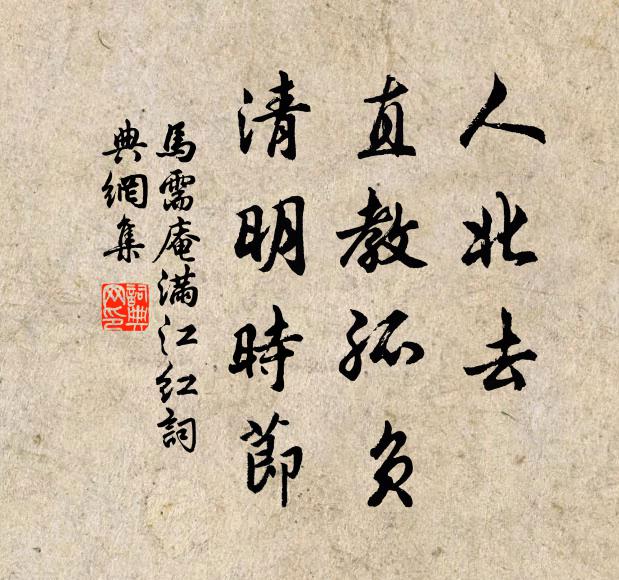 人北去
直教孤负
清明時節
馬需庵滿江紅詞
典網集
詞典網印